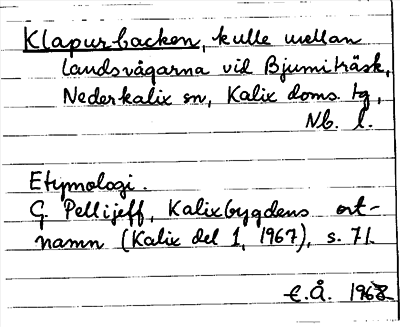 Klapurbacken, kulle mellan
landsvägarna vid Bjumiträsk,
Nederkalix sn, Kalix doms. tg,
Nb. l.
Etymologi.
G. Pellijeff, Kalixbygdens ort-
namn (Kalix del 1, 1967), s. 71.
E.Å. 1968